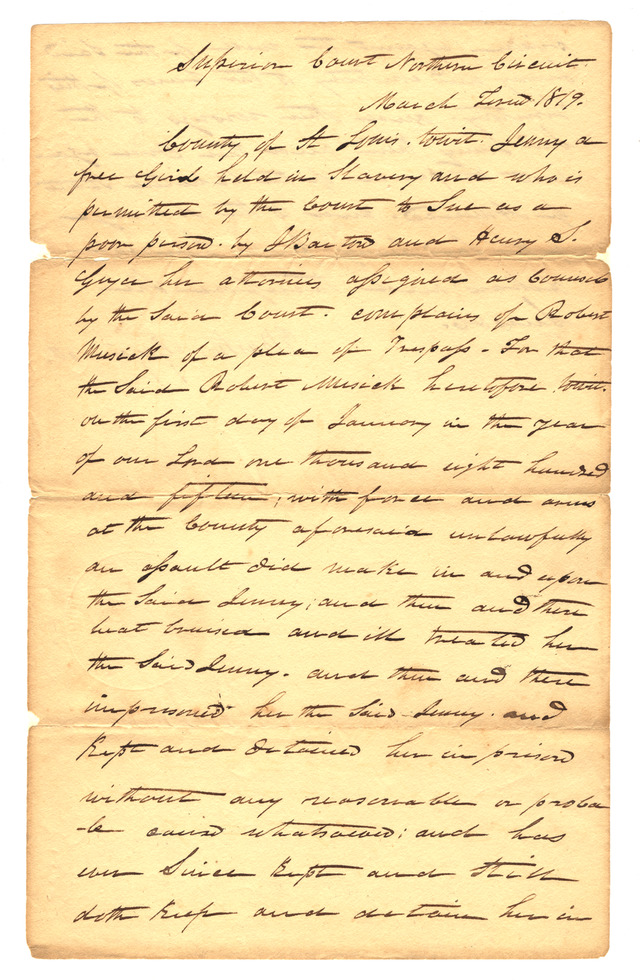 Superior Court Northern Circuit
March Term 1819.
County of St Louis. towit. Jenny a
free Girl held in Slavery and who is
permitted by the Court to Sue as a
poor person. by J Barton and Henry S.
Geyer her attornies assigned as Counsel
by the Said Court. complains of Robert
Musick of a plea of Trespass - For that
the Said Robert Musick heretofore towit.
on the first day of January in the year
of our Lord one thousand eight hundred
and fifteen, with force and arms
at the County aforesaid unlawfully
an assault did make in and upon
the Said Jenny; and then and there
beat bruised and ill treated her
the Said Jenny. and then and there
imprisoned her the Said Jenny. and
Kept and detained her in prison
without any reasonable or proba
-le cause whatsoever; and has
ever Since Kept and Still
doth Keep and detain her in